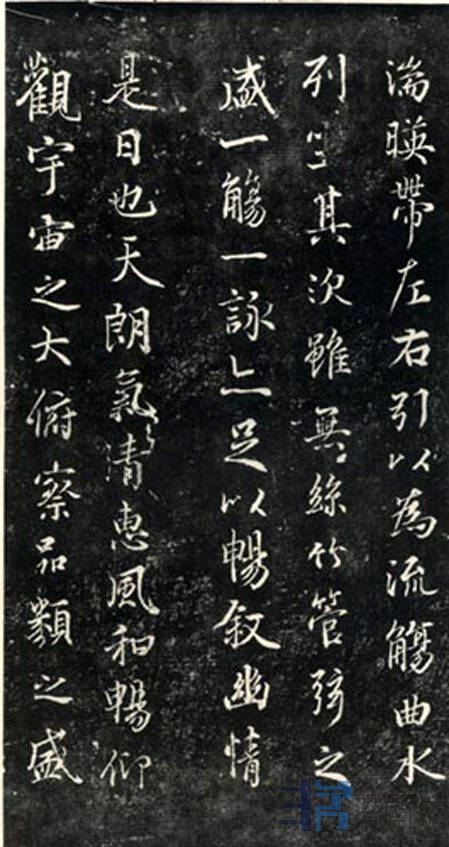 湍暎帶左右引以為流觴曲水
列坐其次雖無絲竹管弦之
盛一觴一詠亦足以暢叙幽情
是日也天朗氣清惠風和暢仰
觀宇宙之大俯察品類之盛